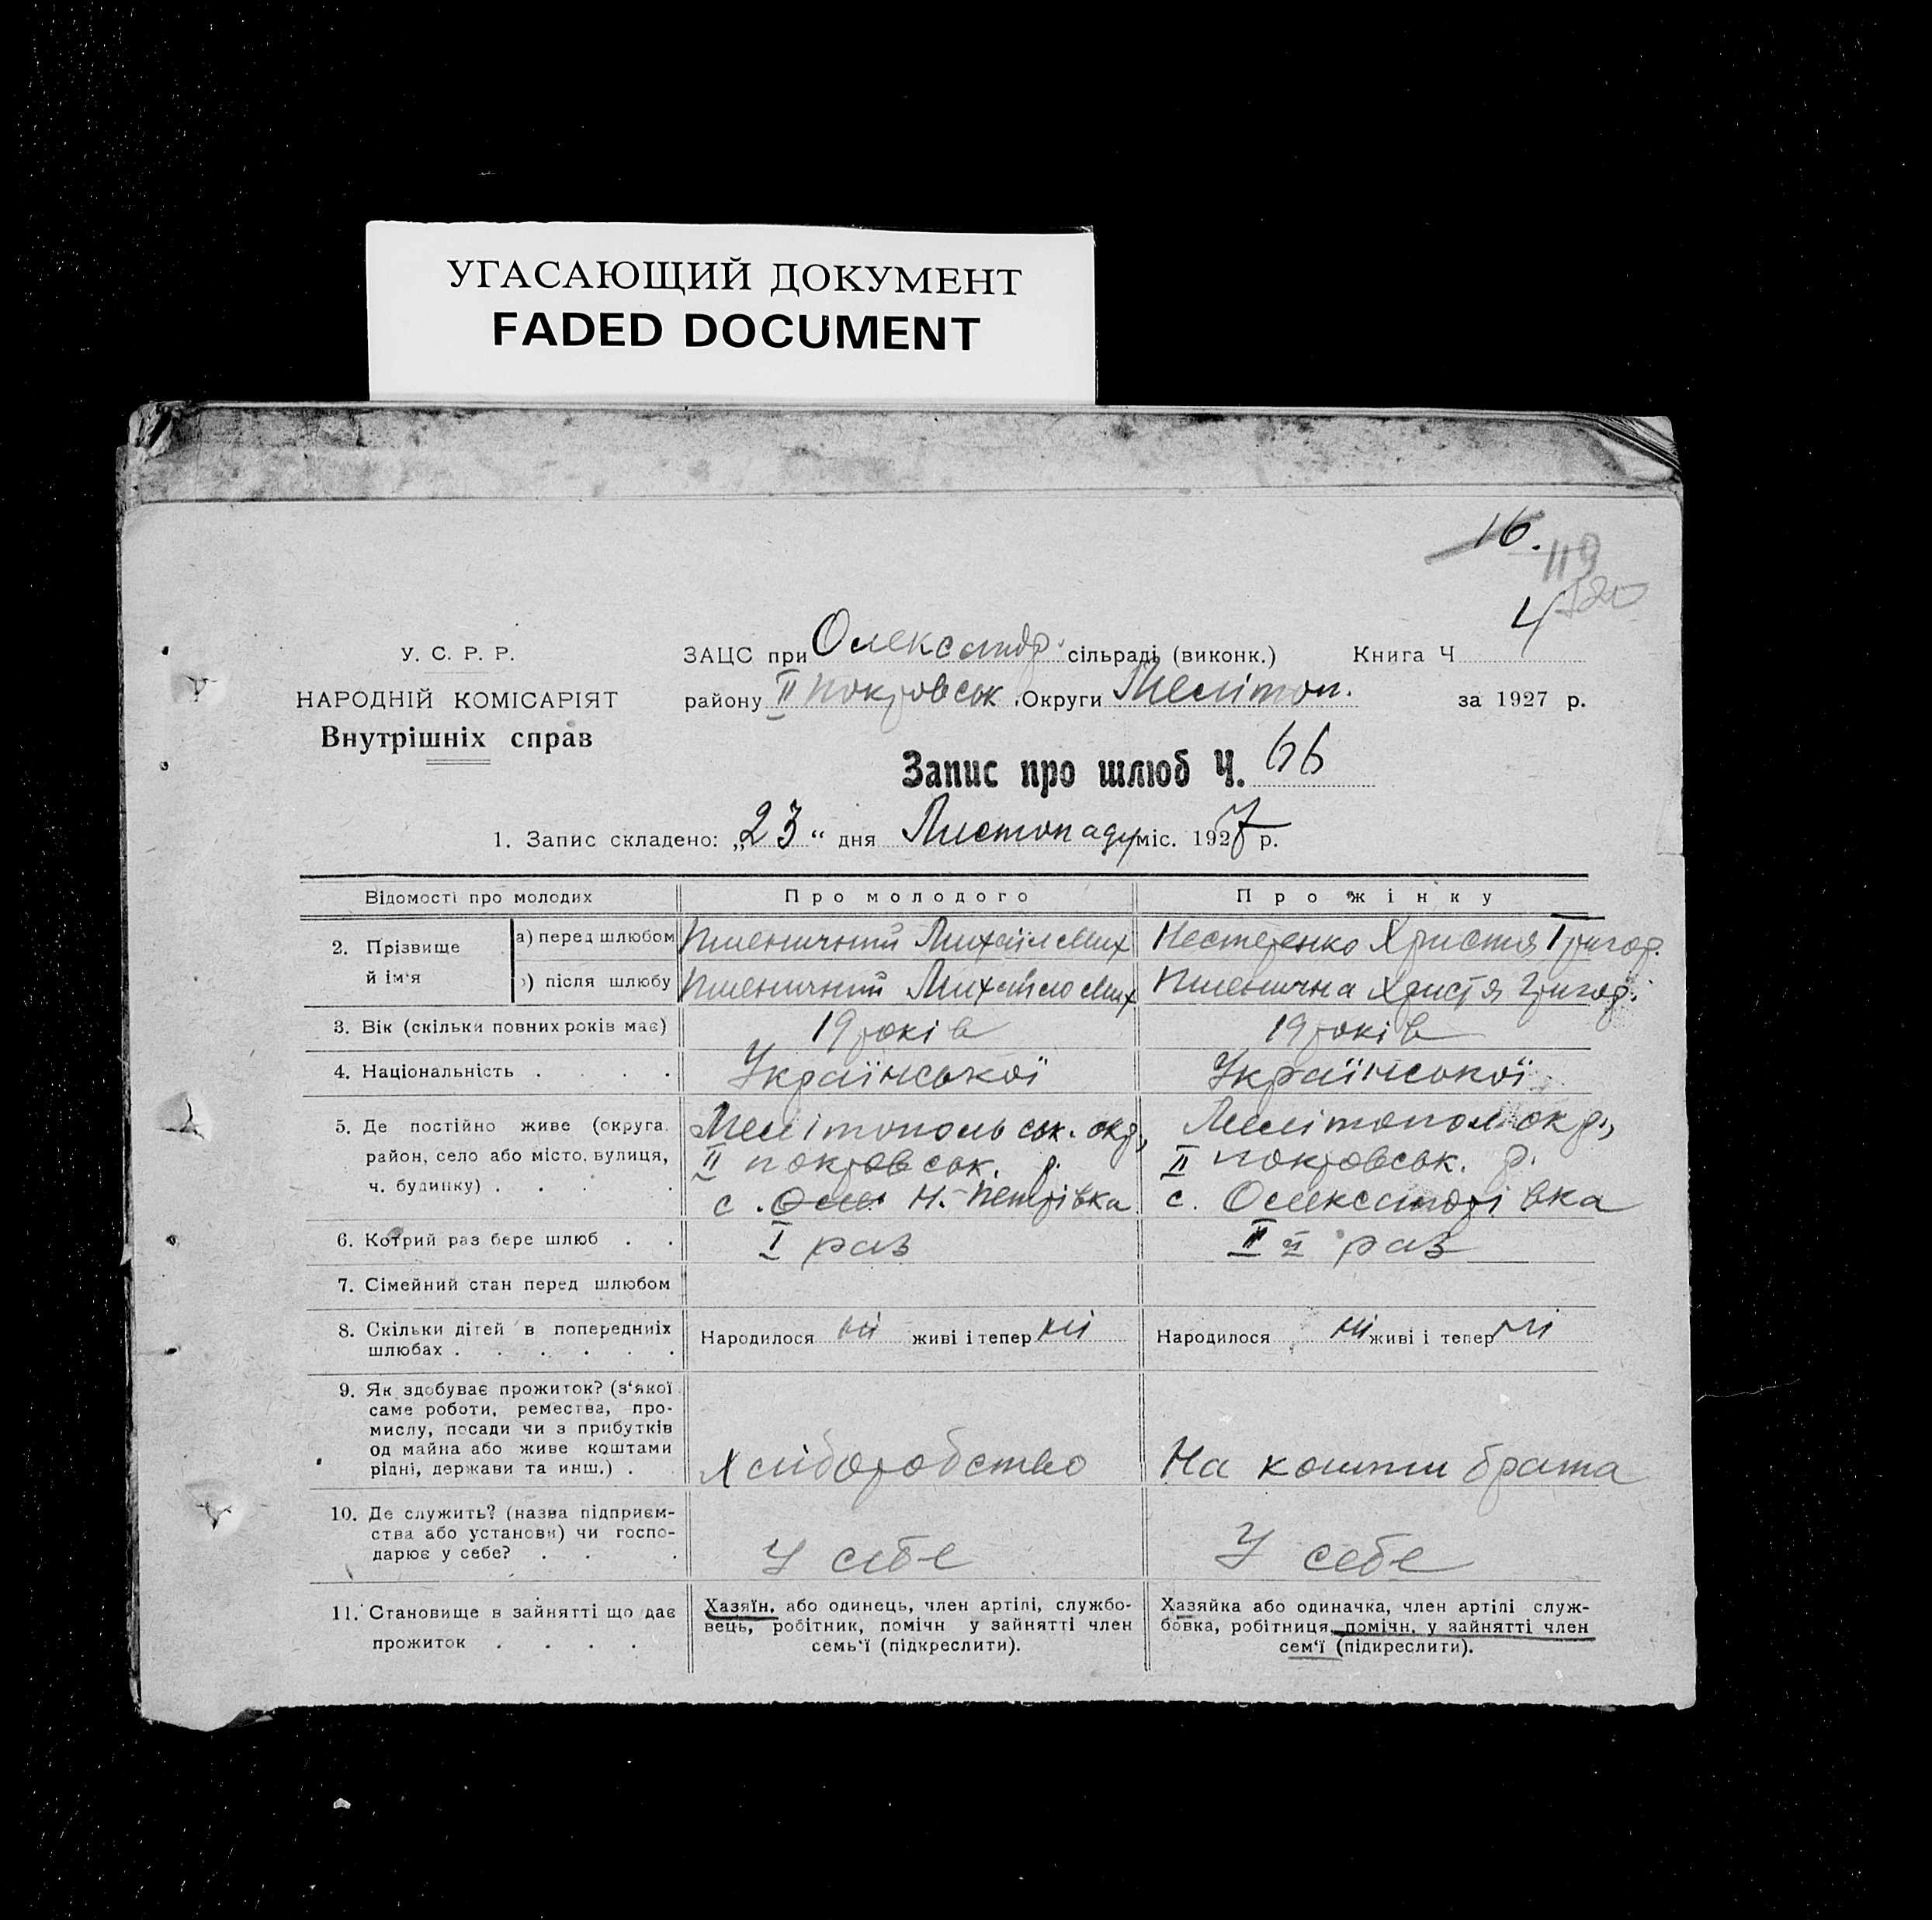 УГАСАЮЩИЙ ДОКУМЕНТ
FADED DOCUMENT
16.
119
4
У. С. Р. Р.
НАРОДНІЙ КОМІСАРІЯТ
Внутрішніх справ
ЗАЦС при Олександр. сільраді (виконк.) Книга Ч
району II Покровськ. Округи Мелітоп. за 1927 р.
Запис про шлюб Ч. 66
1. Запис складено: „23“ дня Листопаду міс. 1927 р.
Відомості про молодих Про молодого Про жінку
2. Прізвище й ім‘я
а) перед шлюбом Пшеничний Михайло Мих Нестеренко Христя Григор.
) після шлюбу Пшеничний Михайло Мих Пшенична Христя Григор.
3. Вік (скільки повних років має) 19 років 19 років
4. Національність . . . . Української Української
5. Де постійно живе (округа, район, село або місто, вулиця, ч. будинку) . . . .
Мелітопольськ. окр,
II Покровськ. р.
с. Оле Н.-Петрівка
Мелітопол окр.,
II Покровськ. р.
с. Олександрівка
6. Котрий раз бере шлюб . . I раз II й раз
7. Сімейний стан перед шлюбом
8. Скільки дітей в попередниіх шлюбах . . . . . .
Народилося ні живі і тепер ні Народилося ні живі і тепер ні
9. Як здобуває прожиток? (з‘якої
саме роботи, ремества, про-
мислу, посади чи з прибутків
од майна або живе коштами
рідні, держави та инш.) .
Хліборобство На кошти брата
10. Де служить? (назва підприєм-
ства або установи) чи госпо-
дарює у себе? . . .
У себе У себе
11. Становище в зайнятті що дає
прожиток . . . .
Хазяїн, або одинець, член артілі, службо-
вець, робітник, помічн у зайнятті член
семь‘ї (підкреслити).
Хазяйка або одиначка, член артілі служ-
бовка, робітниця, помічн. у зайнятті член
сем‘ї (підкреслити).